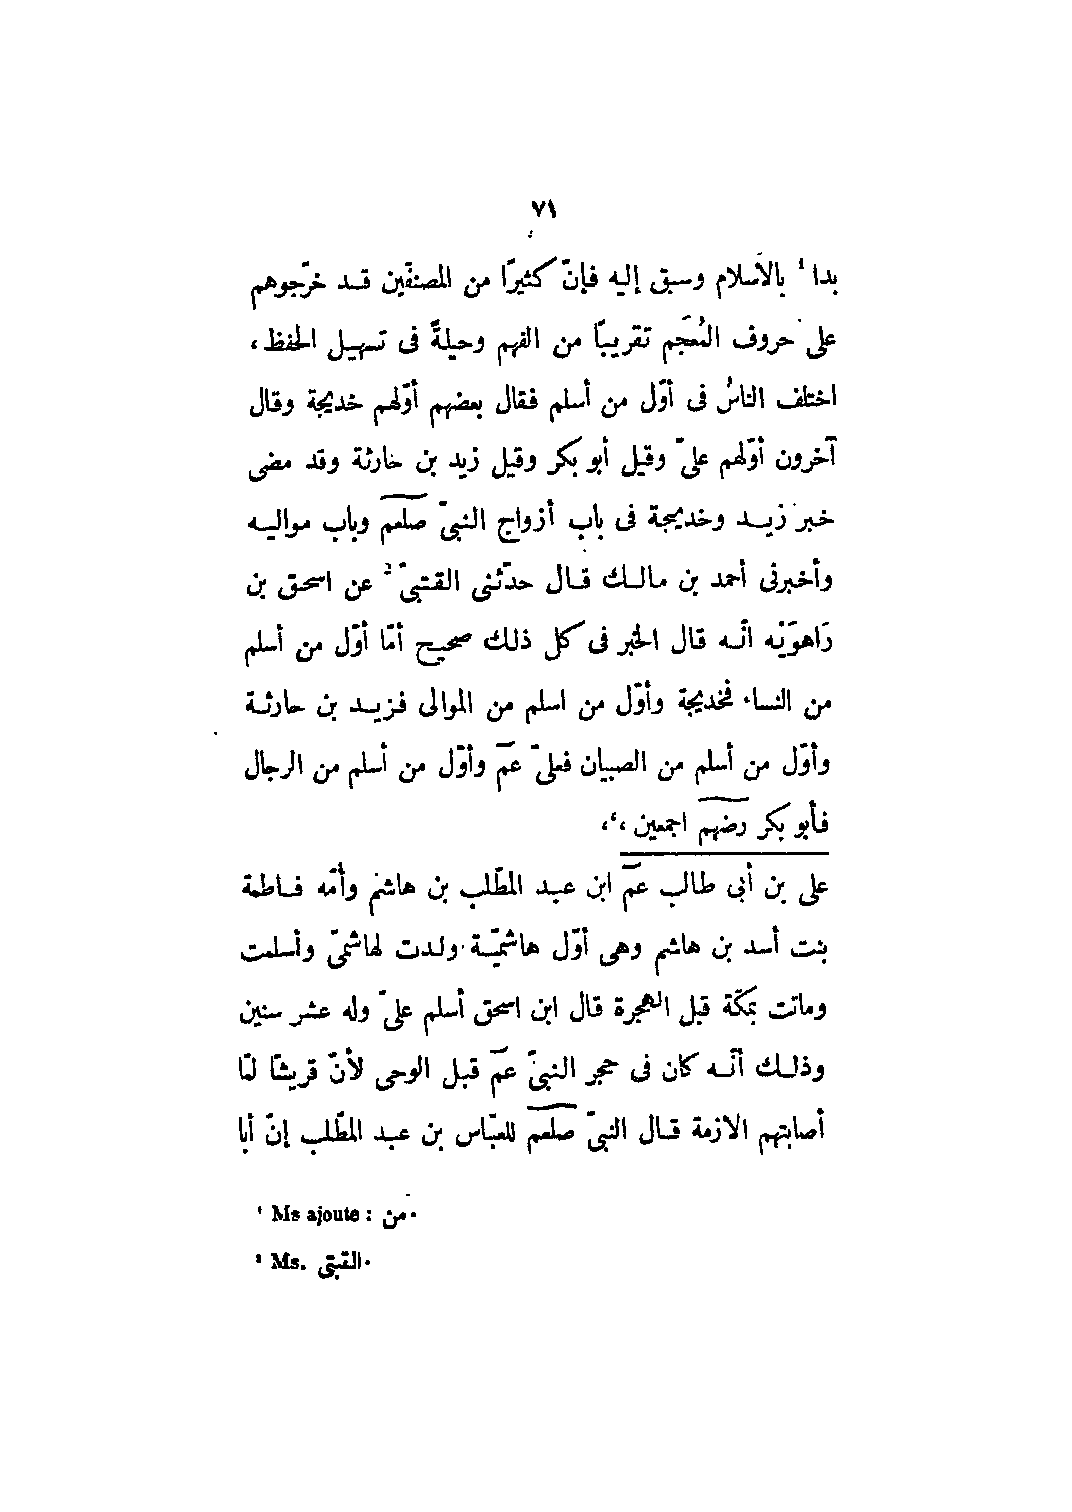 ٧١
بدا ¹ بالأسلام وسبق إليه فإنّ كثيرًا من المصنّفين قد خرّجوهم
على حروف المُعْجَم تقريبًا من الفهم وحيلةً فى تسهيل الحفظ،
اختلف الناسُ فى أوّل من أسلم فقال بعضهم أوّلهم خديجة وقال
آخرون أوّلهم علىّ وقيل أبو بكر وقيل زيد بن حارثة وقد مضى
خبر زيد وخديجة فى باب أزواج النبىّ صلعم وباب مواليه
وأخبرنى أحمد بن مالك قال حدّثنى القتبىّ ² عن اسحق بن
رَاهوَيْه انّه قال الخبر فى كل ذلك صحيح أمّا أوّل من أسلم
من النساء فخديجة وأوّل من اسلم من الموالى فزيد بن حارثة
وأوّل من أسلم من الصبيان فعلىّ عم وأوّل من أسلم من الرجال
فأبو بكر رضهم اجمعين ،،
على بن أبى طالب عم ابن عبد المطّلب بن هاشم وأمّه فاطمة
بنت أسد بن هاشم وهى أوّل هاشميّة ولدت لهاشمىّ وأسلمت
وماتت بمكّة قبل الهجرة قال ابن اسحق أسلم علىّ وله عشر سنين
وذلك أنّه كان فى حجر النبىّ عم قبل الوحى لأنّ قريشًا لمّا
أصابتهم الازمة قال النبىّ صلعم للعبّاس بن عبد المطّلب إنّ أبا
¹ Ms ajoute : من.
² Ms. القبتى.